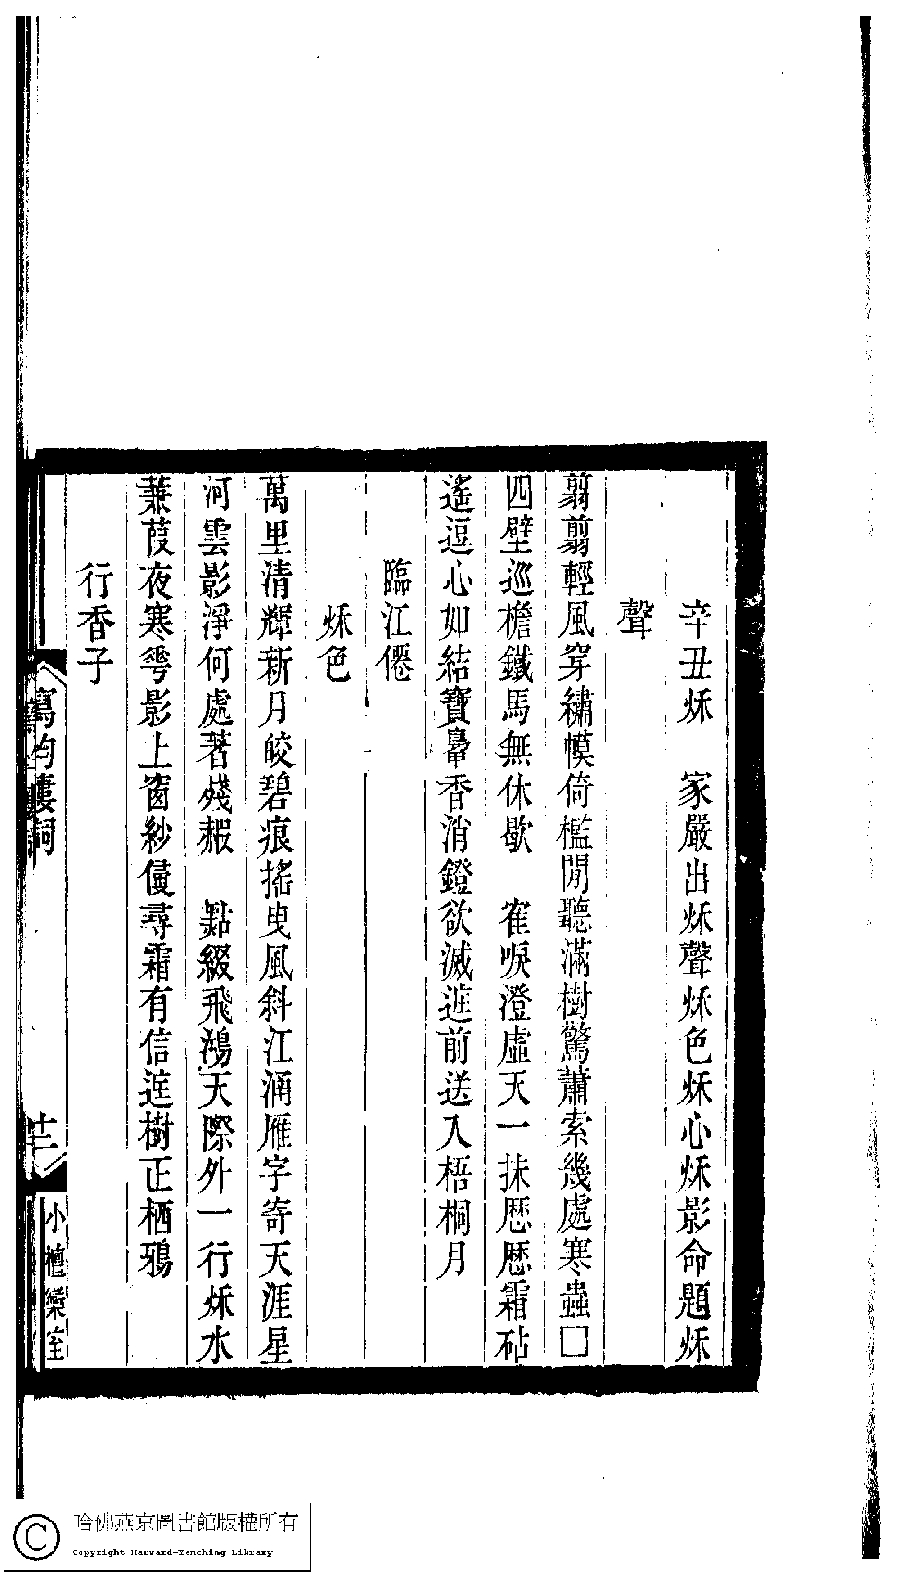 辛丑秌　家嚴出秌聲秌色秌心秌影命題秌
聲
翦翦輕風穿繡幙倚檻閒聽滿樹驚蕭索幾處寒蟲□
四壁巡檐鐵馬無休歇　隺唳澄虛天一抹歷歷霜砧
遙逗心如結寶鼎香消鐙欲滅庭前送入梧桐月
臨江僊
秌色
萬里清輝新月皎碧痕搖曳風斜江涵雁字寄天涯星
河雲影淨何處著殘霞　點綴飛鴻天際外一行秌水
蒹葭夜寒蕚影上窗紗僾尋霜有信庭樹正栖鴉
行香子
寫均樓詞
十二
小檀欒室
哈佛燕京圖書館版權所有
Copyright Harvard-Yenching Library